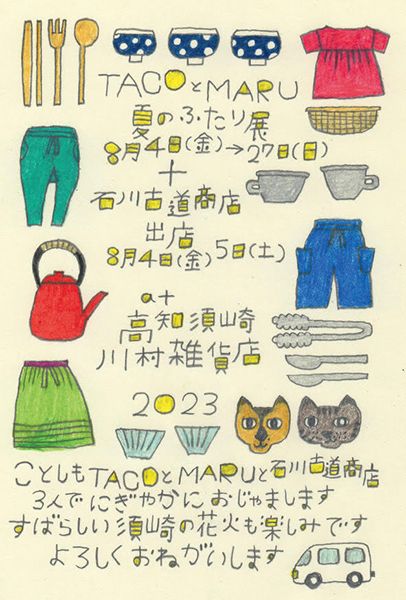 TACOとMARU
夏のふたり展
8月4日(金)→27日(日)
+
石川古道商店
出店
8月4日(金)5日(土)
at
高知須崎
川村雑貨店
2023
ことしもTACOとMARUと石川古道商店
3人でにぎやかにおじゃまします
すばらしい須崎の花火も楽しみです
よろしくおねがいします